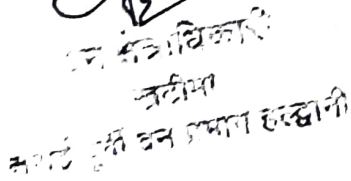 वन क्षेत्राधिकारी
खटीमा
तराई पूर्वी वन प्रभाग हल्द्वानी